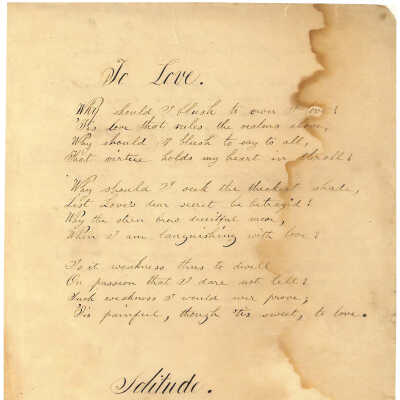 To Love.
Why should I blush to own I love?
'Tis love that rules the realms above,
Why should I blush to say to all,
That virtue holds my heart in thrall?
Why should I seek the thickest shade,
Lest Love's dear secret be betray'd?
Why the stern brow deceitful move,
When I am languishing with love?
Is it weakness thus to dwell
On passion that I dare not tell?
Such weakness I would ever prove;
'Tis painful, though 'tis sweet, to love.
Solitude.